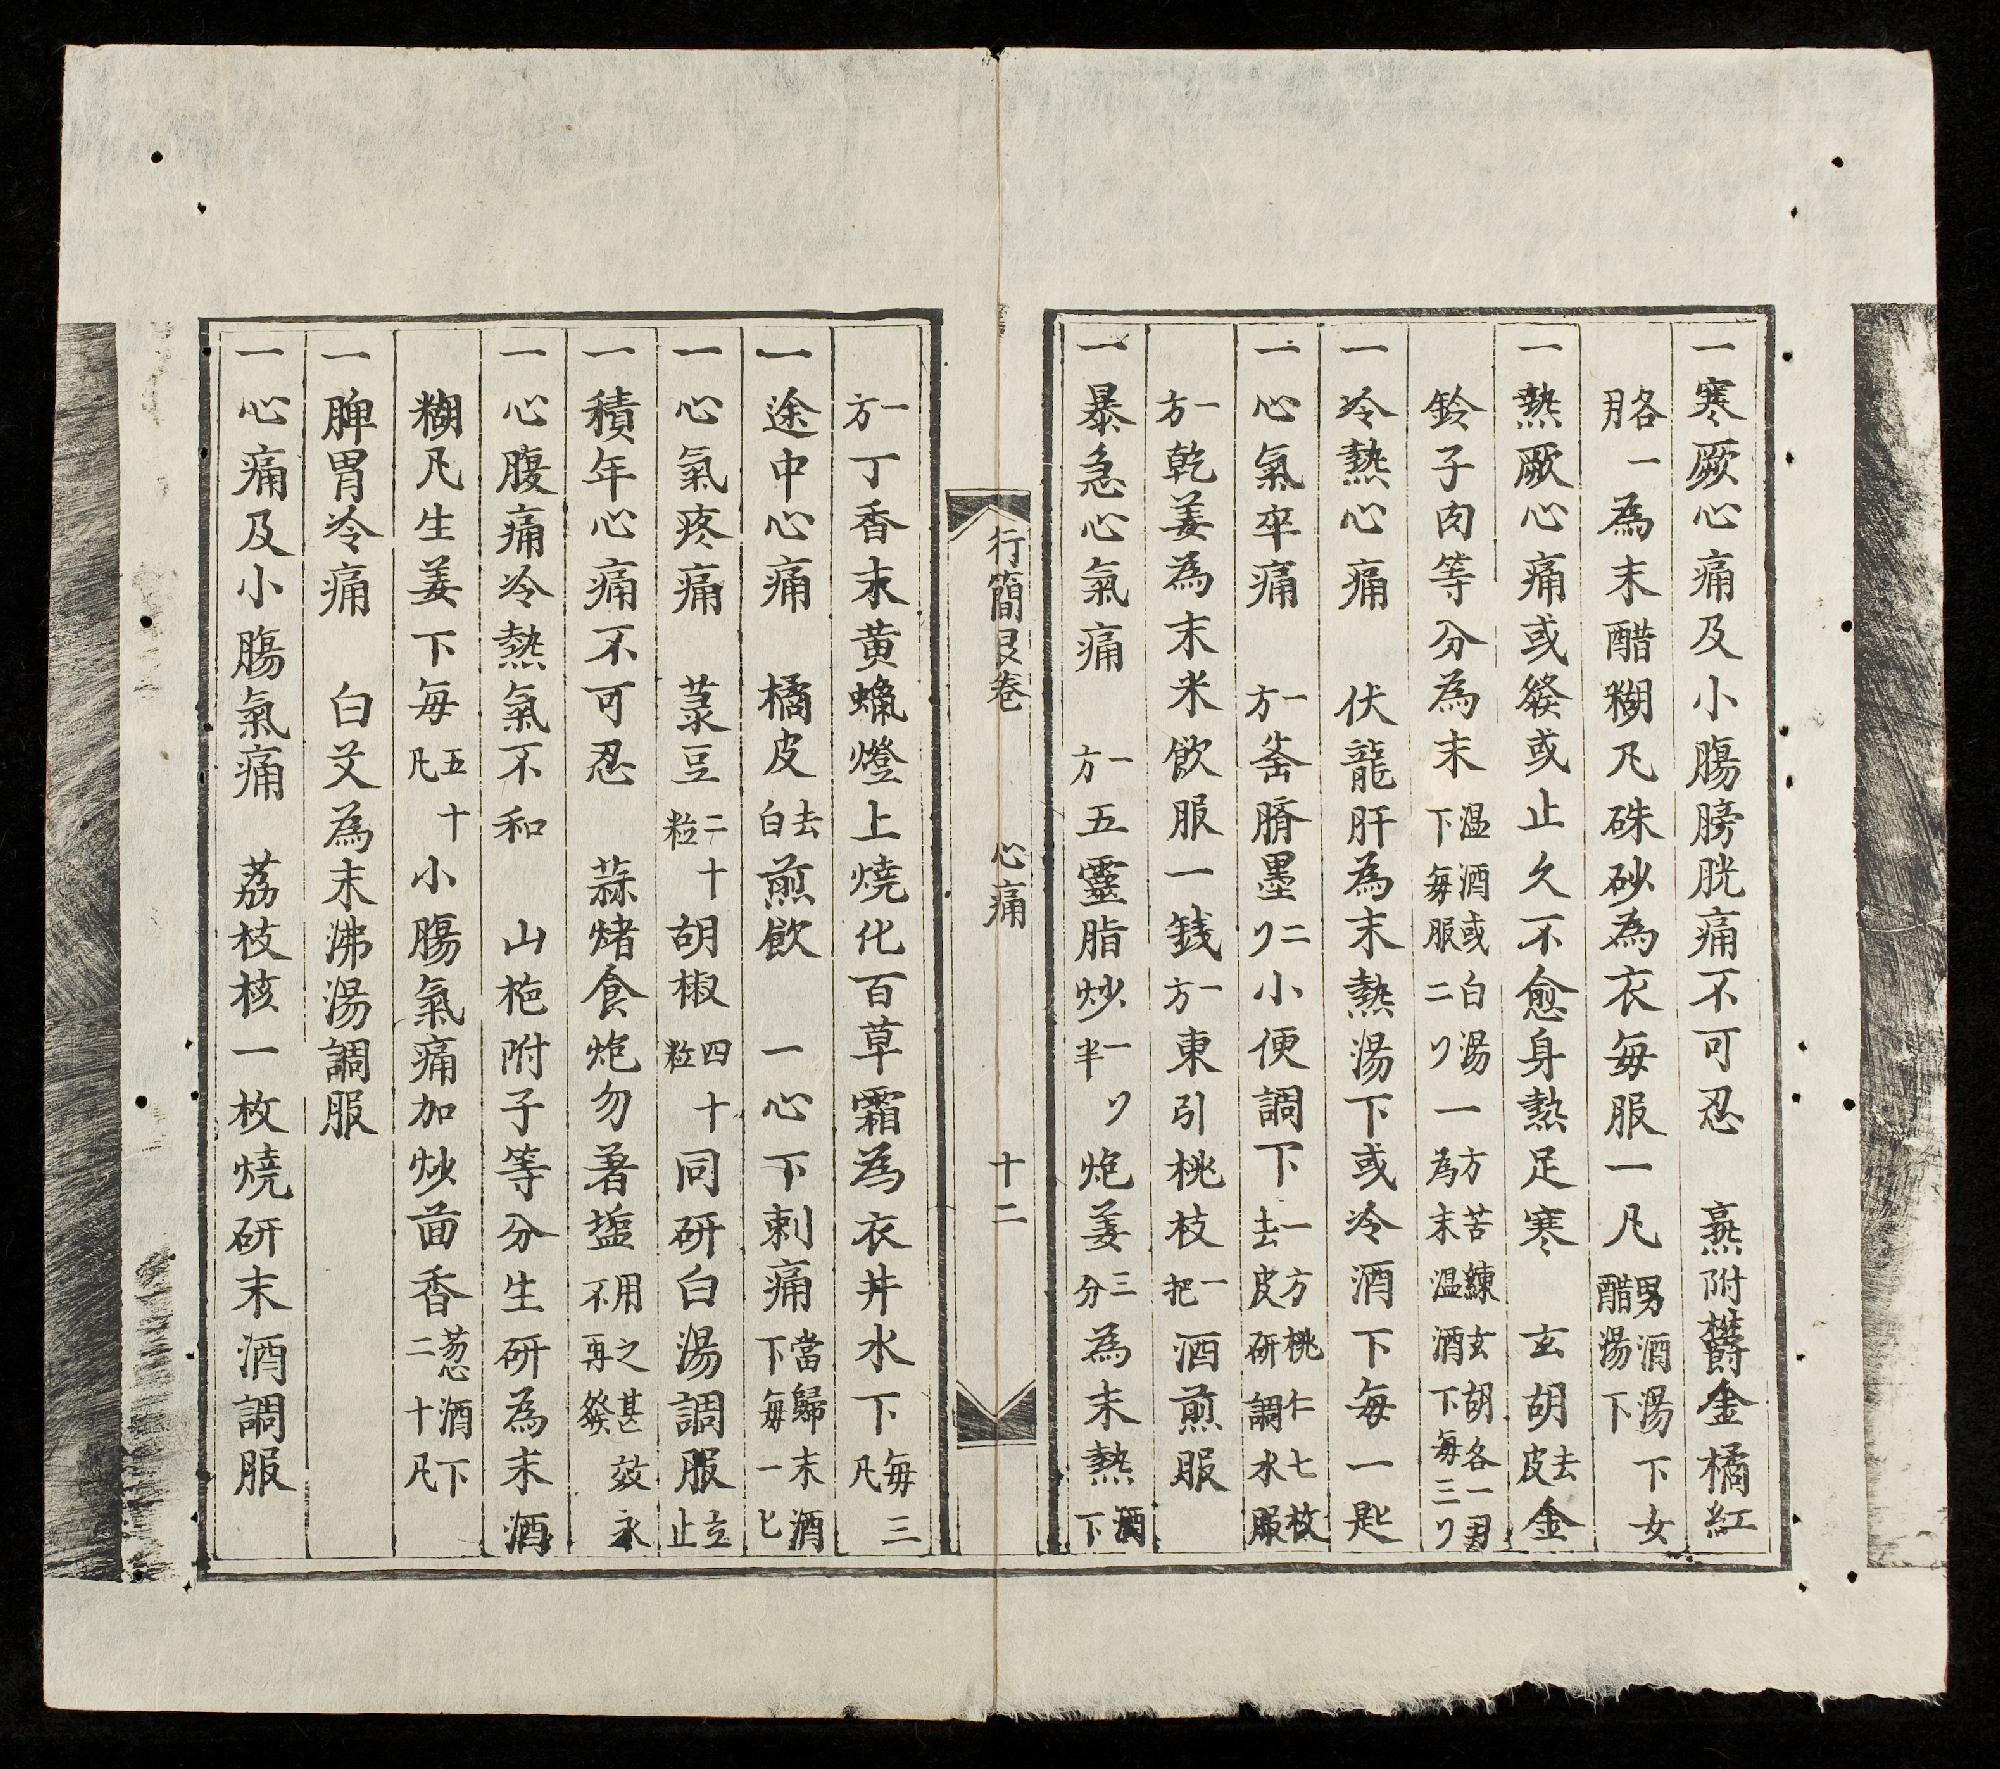 一寒厥心痛及小腸膀胱痛不可忍　𤋱附欝金橘紅
各一朋為末醋糊凡硃砂為衣每服一凡男酒湯下女醋湯下
一熱厥心痛或發或止久不愈身熱足寒　玄胡去皮金
鈴子肉等分為末温酒或白湯下每服二リ一方苦練玄胡各一為末温酒下每三リ
一冷熱心痛　伏龍肝為末熱湯下或冷酒下每一匙
一心氣卒痛　一方釜臍墨二リ小便調下一方桃仁七枚去皮研調水服
一方乾姜為末米飲服一錢一方東引桃枝一把酒煎服
一暴急心氣痛　一方五靈脂炒一リ半炮姜三分為末熱酒下
行簡艮卷　心痛　十二
一方丁香末黄蠟燈上燒化百草霜為衣井水下每三凡
一途中心痛　橘皮去白煎飲　一心下刺痛當歸末酒下每一匕
一心氣疼痛　菉豆二十粒胡椒四十粒同研白湯調服立止
一積年心痛不可忍　蒜煮食炮勿著塩用之甚效永不再發
一心腹痛冷熱氣不和　山梔附子等分生研為末酒
糊凡生姜下每五十凡小腸氣痛加炒茴香葱酒下二十凡
一脾胃冷痛　白艾為末沸湯調服
一心痛及小腸氣痛　荔枝核一枚燒研末酒調服